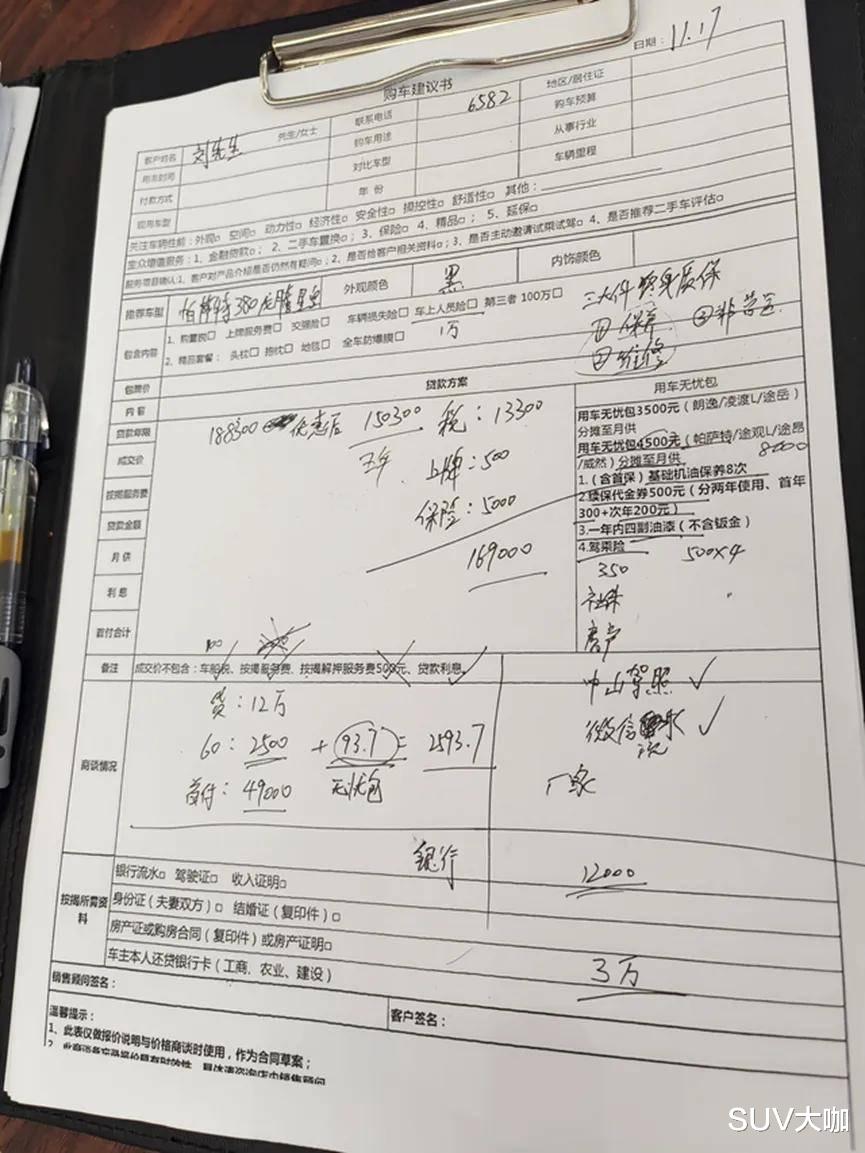 日期：11.17
购车建议书
客户姓名 刘先生 先生/女士 联系电话 6582 地区/居住证
用车时间 购车用途 购车预算
付款方式 对比车型 从事行业
现用车型 年份 车辆里程
关注车辆性能：外观□ 空间□ 动力性□ 经济性□ 安全性□ 操控性□ 舒适性□ 其他：
业众增值服务：1、金融贷款□；2、二手车置换□；3、保险□ 4、精品□；5、延保□
服务项目确认:1、客户对产品介绍是否仍然有疑问□；2、是否给客户相关资料□；3、是否主动邀请试乘试驾□ 4、是否推荐二手车评估□
推荐车型 帕萨特380龙腾星空 外观颜色 黑 内饰颜色
三大件终身质保
包含内容
1、购置税□ 上牌服务费□ 交强险□ 车辆损失险□ 车上人员险□ 第三者100万□
1万
① 保养 ③非营运
2、精品套餐：头枕□ 抱枕□ 地毯□ 全车防爆膜□
② 维修
包牌价
内容 贷款方案 用车无忧包
贷款年限
成交价
按揭服务费
贷款金额
月供
利息
首付合计
188300 优惠后 150300 税：13300
五年 上牌：500
保险：5000
169000
用车无忧包3500元（朗逸/凌渡L/途岳）
分摊至月供
用车无忧包4500元（帕萨特/途观L/途昂
/威然）分摊至月供 8000
1.（含首保）基础机油保养8次
2.续保代金券500元（分两年使用、首年
300+次年200元）
3.一年内四副油漆（不含钣金）
4.驾乘险 500×4
350
社保
房产
备注 成交价不包含：车船税、按揭服务费、按揭解押服务费500元、贷款利息。
商谈情况
贷：12万
60：2500 + 93.7 = 2593.7
首付：49000 无忧包
中山驾照 ✓
微信
厂家
银行
12000
3万
按揭所需资料
银行流水□ 驾驶证□ 收入证明□
身份证（夫妻双方）□ 结婚证（复印件）□
房产证或购房合同（复印件）或房产证明□
车主本人还贷银行卡（工商、农业、建设）
销售顾问签名： 客户签名：
温馨提示：
1、此表仅做报价说明与价格商谈时使用，作为合同草案；
SUV大咖